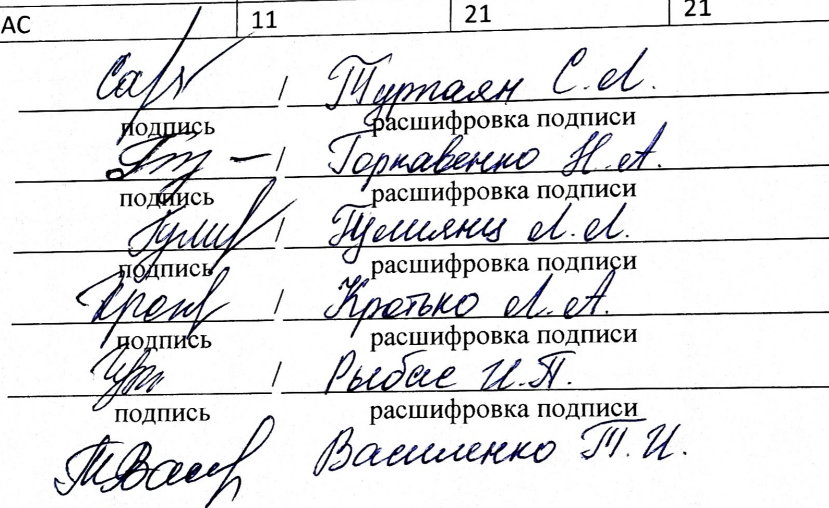 АС 11 21 21
/ Турпаян С.Л.
подпись расшифровка подписи
/ Горкавенко Н.А.
подпись расшифровка подписи
/ Гулиянц Л.Л.
подпись расшифровка подписи
/ Кротько Л.А.
подпись расшифровка подписи
/ Рыбас И.П.
подпись расшифровка подписи
Василенко Т.И.